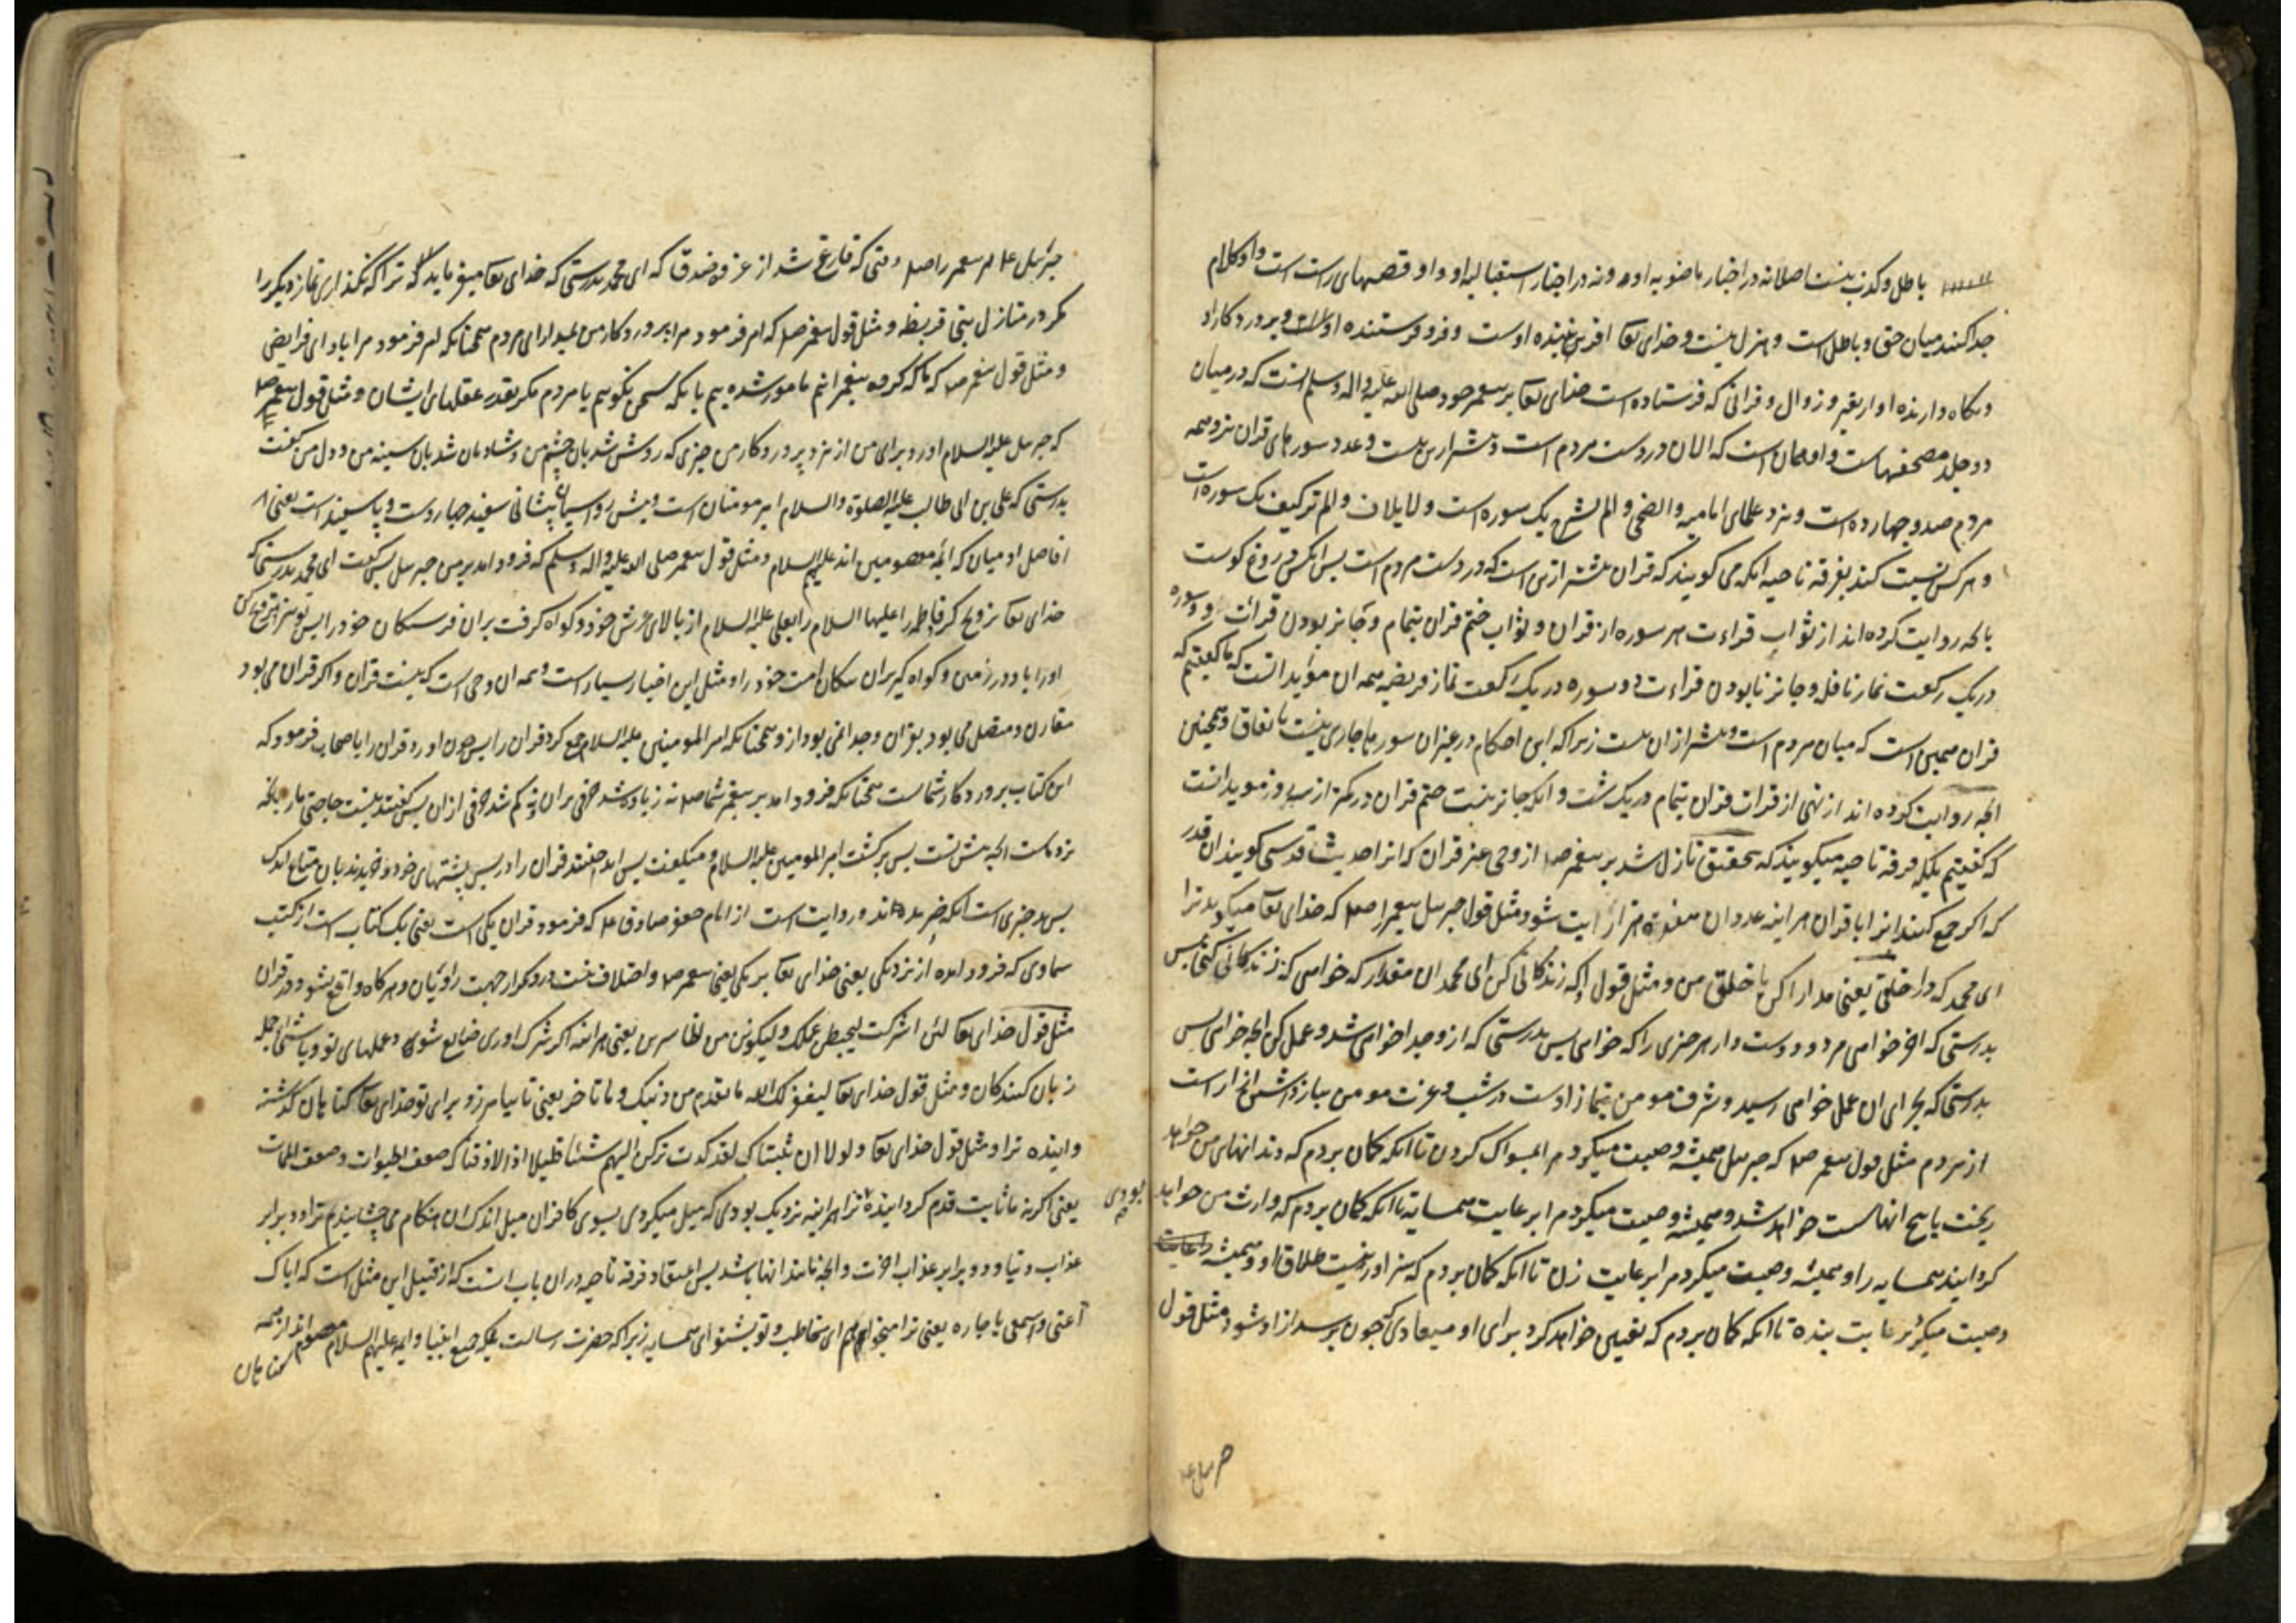 باطل و کذب نیست اصلا نه در اخبار ماضویه او و نه در اخبار استقبالیه او و او قصهای راست است و او کلام
جدا کننده میان حق و باطل است و هزل نیست و خدای تعا افریننده اوست و فرو فرستنده اوست و پروردکار او
و نکاه دارنده او از تغیر و زوال و قرانی که فرستاده است خدای تعا بر پیغمبر خود صلی الله علیه واله وسلم انست که در میان
دو جلد مصحفهاست و او همان است که الان در دست مردم است و بیشتر ازین نیست و عدد سورهای قران نزد همه
مردم صد و چهارده است و نزد علمای امامیه والضحی و الم نشرح یک سوره است و لایلاف و الم ترکیف یک سوره است
و هر کس نسبت کند بفرقه ناجیه انکه می کویند که قران بیشتر ازین است که در دست مردم است پس انکس دروغ کوست
بانچه روایت کرده اند از ثواب قراءت هر سوره از قران و ثواب ختم قران بتمام و جایز بودن قرائت دو سوره
در یک رکعت نماز نافله و جایز نابودن قراءت دو سوره در یک رکعت نماز فریضه همه ان مؤید انست که ما کفتیم که
قران همین است که میان مردم است و بیشتر ازان نیست زیرا که این احکام در غیر ان سورها جاری نیست باتفاق و همچنین
انچه روایت کرده اند از نهی از قرات قران بتمام در یک شب و انکه جایز نیست ختم قران در کمتر از سه روز موید انست
که کفتیم بلکه فرقه ناجیه میکویند که بتحقیق نازل شد بر پیغمبر صلم از وحی غیر قران که انرا احدیث قدسی کویند ان قدر
که اکر جمع کنند انرا با قران هر اینه عدد ان هفده هزار ایت شود و مثل قول جبرییل پیغمبر را صلم که خدای تعا میکوید ترا
ای محمد که دار خلقی یعنی مدارا کن با خلق من و مثل قول او که زندکانی کن ای محمد ان مقدار که خواهی که زندکانی کنی پس
بدرستی که اخر خواهی مرد و دوست دار هر چیزی را که خواهی پس بدرستی که ازو جدا خواهی شد و عمل کن انچه خواهی پس
بدرستی که بجزای ان عمل خواهی رسید و شرف مومن بنماز اوست در شب و عزت مومن بباز داشتن ازار است
از مردم مثل قول پیغمبر صلم که جبرییل همیشه وصیت میکرد مرا بمسواک کردن تا انکه کمان بردم که دندانهای من خواهد
ریخت یا بیخ انها سست خواهد شد و همیشه وصیت میکرد مرا برعایت همسایه تا انکه کمان بردم که وارث من خواهد
کردانید همسایه را و همیشه وصیت میکرد مرا برعایت زن تا انکه کمان بردم که سزاوار نیست طلاق او و همیشه
وصیت میکرد برعایت بنده تا انکه کمان بردم که تعیین خواهد کرد برای او میعادی که چون برسد ازاد شود و مثل قول
جبرییل ع
جبرییل ع مر پیغمبر را صلم وقتی که فارغ شد از غزوه خندق که ای محمد بدرستی که خدای تعا میفرماید که ترا که نکذاری نماز دیکر را
مکر در منازل بنی قریظه و مثل قول پیغمبر صلم که امر فرمود مرا پروردکار من بمدارای مردم همچنانکه امر فرمود مرا بادای فرایض
و مثل قول پیغمبر صلم که ما که کروه پیغمبرانیم مامور شده ییم بانکه سخن نکوییم با مردم مکر بقدر عقلهای ایشان و مثل قول پیغمبر صلم
که جبرییل علیه السلام اورد برای من از نزد پروردکار من چیزی که روشن شد بان چشم من و شادمان شد بان سینه من و دل من کفت
بدرستی که علی بن ابی طالب علیه الصلوة والسلام امیر مومنان است و پیش رو پیشانی سفید دست و پا سفید است یعنی
افاضل ادمیان که ائمه معصومین اند علیهم السلام و مثل قول پیغمبر صلی الله علیه واله وسلم که فرود امد بر من جبرییل پس کفت ای محمد بدرستی که
خدای تعا تزویج کرد فاطمه را علیها السلام را بعلی علیه السلام از بالای عرش خود و کواه کرفت بران فرشتکان خود را پس تو نیز تزویج کن
او را باو در زمین و کواه کیر بران نیکان امت خود را و مثل این اخبار بسیار است و همه ان وحی است که نیست قران و اکر قران می بود
مقارن و متصل می بود بقران و جدا نمی بود ازو همچنانکه امیر المومنین علیه السلام جمع کرد قران را پس چون اورد قران را باصحاب فرمود که
این کتاب پروردکار شماست همچنانکه فرود امد بر پیغمبر شما صلم نه زیاده شد حرفی بران و نه کم شد حرفی ازان پس کفتند نیست حاجتی ما را بانچه
نزد ماست انچه پیش تست پس برکشت امیر المومنین علیه السلام و میکفت پس انداختند قران را در پس پشتهای خود و خریدند بان متاع اندک
پس بد چیزی است انکه خریده اند و روایت است از امام جعفر صادق ع که فرمود قران یکی است یعنی یک کتاب است از کتب
سماوی که فرود امده از نزد یکی یعنی خدای تعا بر یکی یعنی پیغمبر صلم و اختلاف نیست درو مکر از جهت راویان و هر کاه واقع شود در قران
مثل قول خدای تعا لئن اشرکت لیحبطن عملک ولیکونن من الخاسرین یعنی هر اینه اکر شرک اوری ضایع شود عملهای تو و باشی از جمله
زیان کنندکان و مثل قول خدای تعا لیغفر لک الله ما تقدم من ذنبک و ما تاخر یعنی تا بیامرزد برای تو خدای تعا کناهان کذشته
و اینده ترا و مثل قول خدای تعا ولولا ان ثبتناک لقد کدت ترکن الیهم شیئا قلیلا اذا لاذقناک ضعف الحیوات وضعف الممات
یعنی اکر نه ما ثابت قدم کردانیده ترا هر اینه نزدیک بودی که میل میکردی بسوی کافران میل اندک ان هنکام می چشانیدیم ترا دو برابر
بودی
عذاب دنیا و دو برابر عذاب اخرت و انچه مانند انها باشد پس اعتقاد فرقه ناجیه دران باب انست که از قبیل این مثل است که ایاک
اعنی واسمعی یا جاره یعنی ترا میخواهم ای مخاطب و تو بشنو ای همسایه زیرا که حضرت رسالت بلکه جمیع انبیا و ایمه علیهم السلام معصوم اند از همه
کناهان